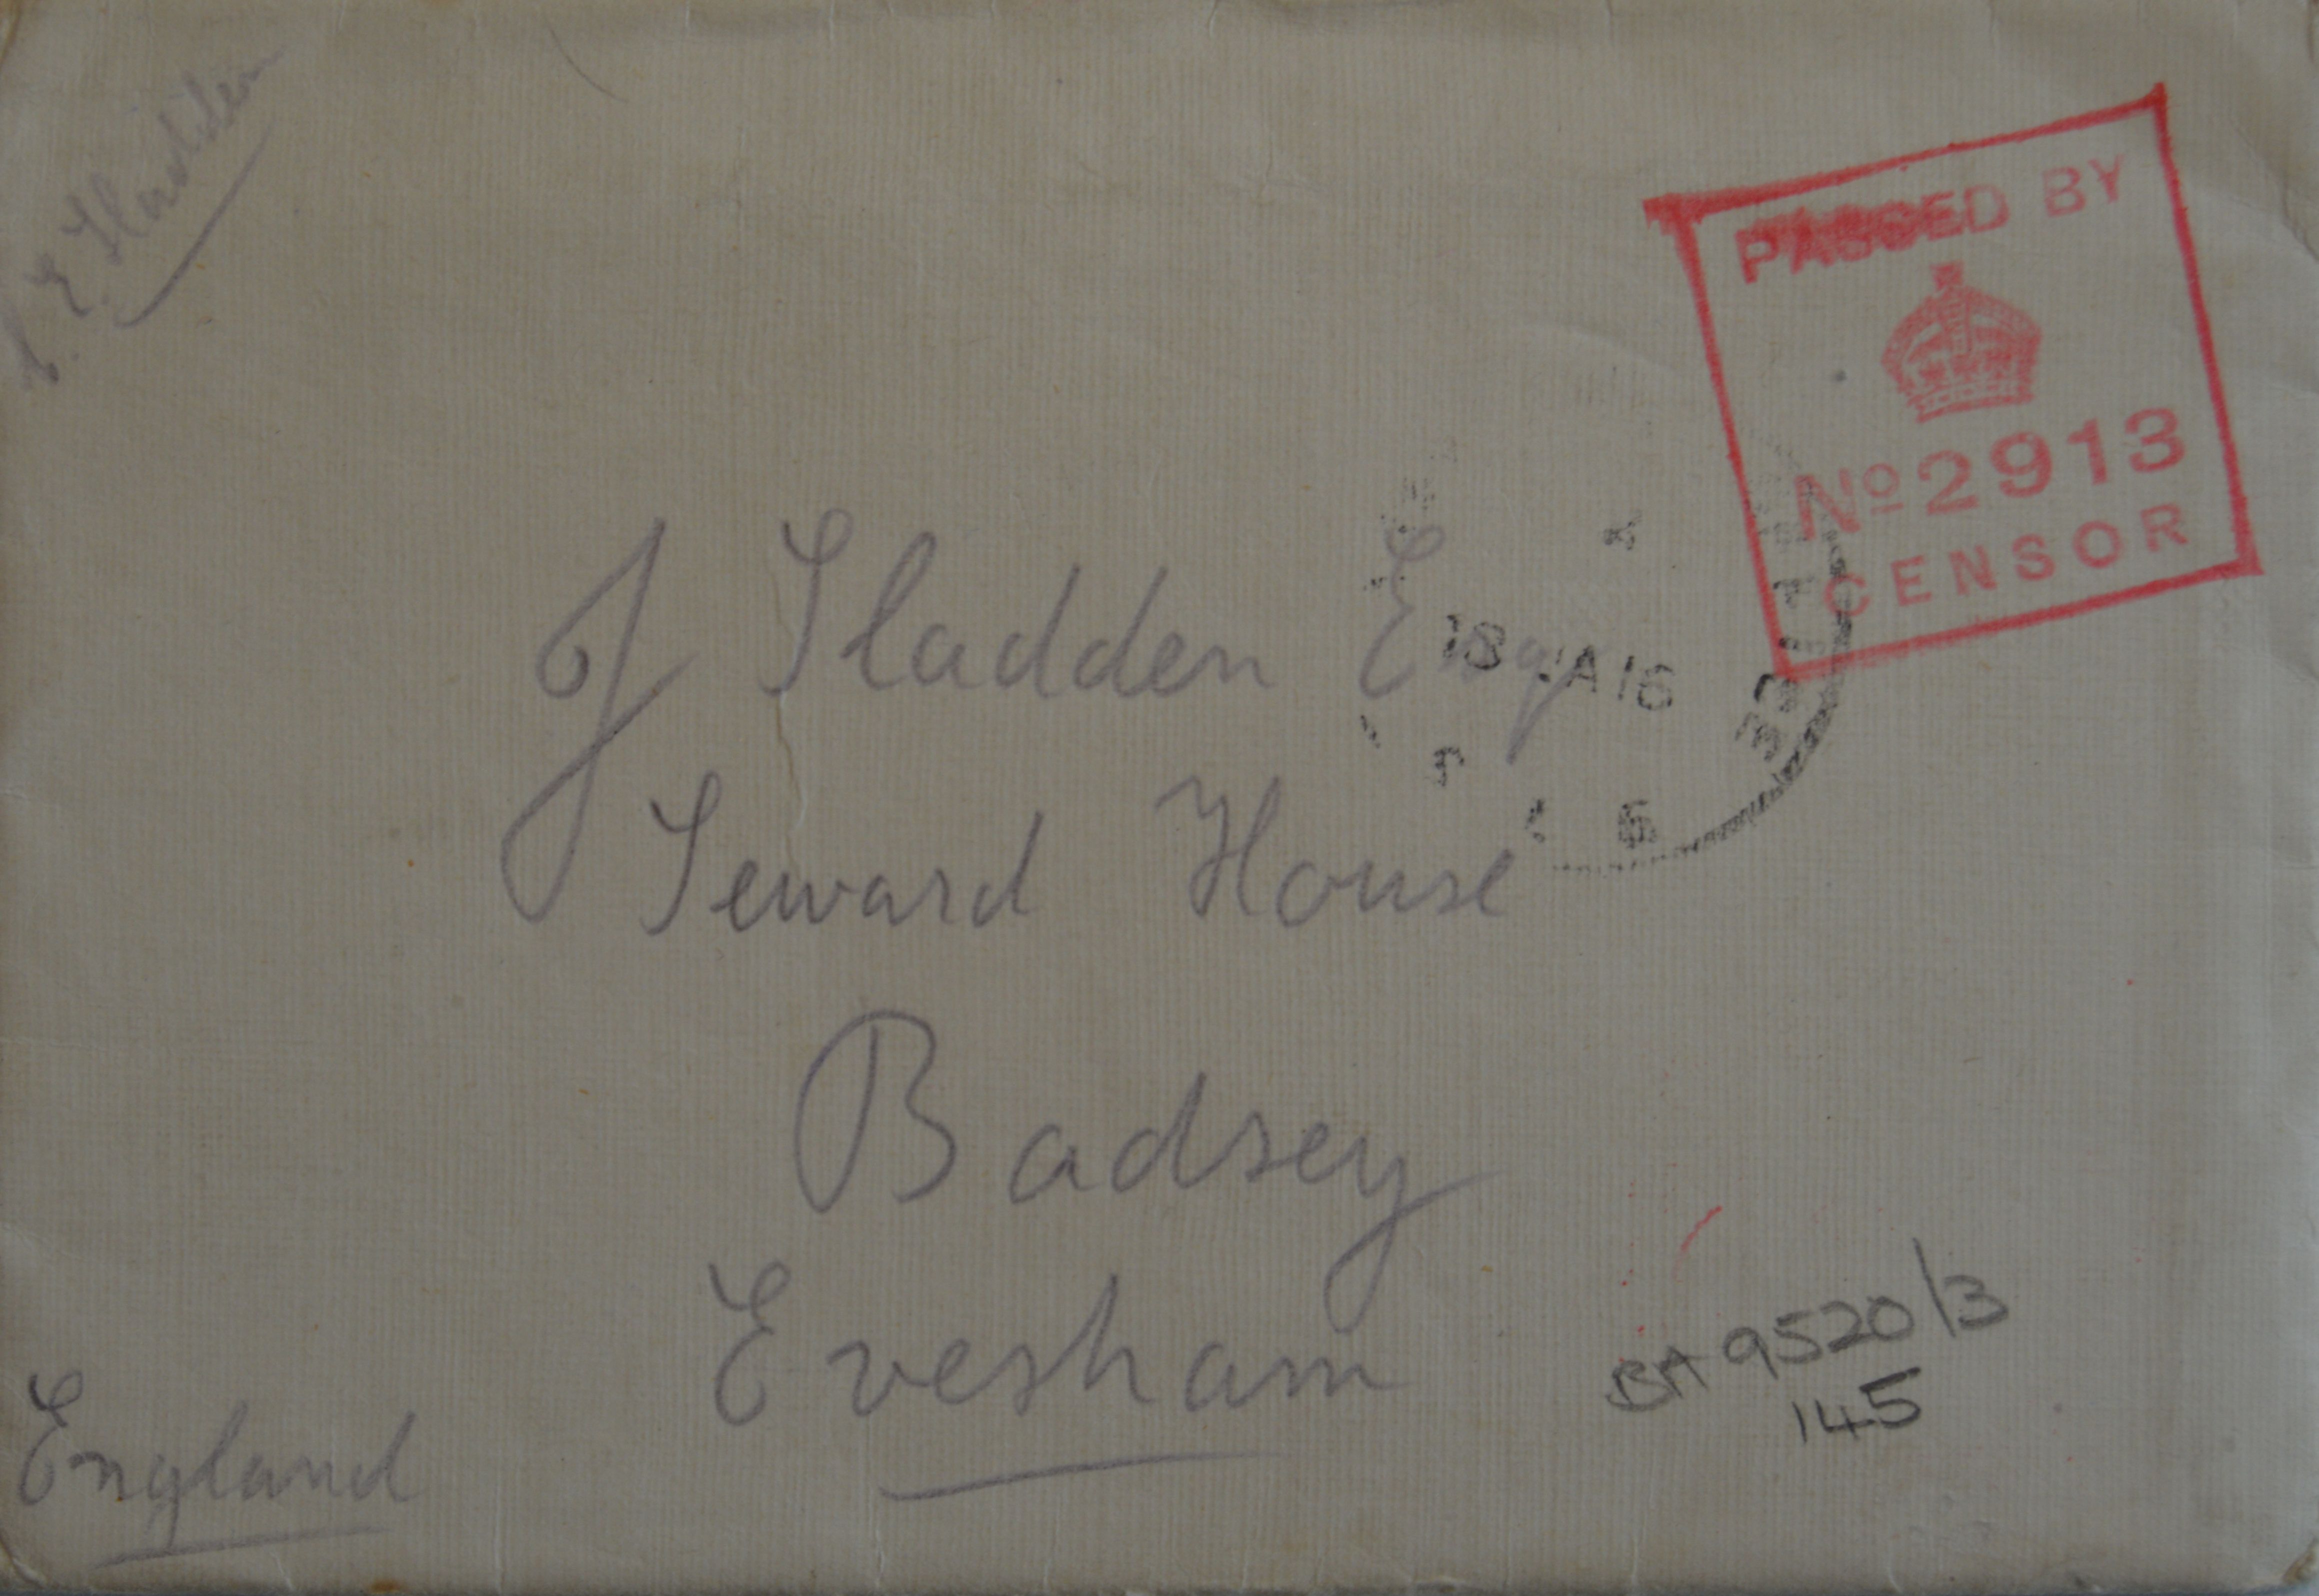 E. Sladden
PASSED BY
No 2913
CENSOR
J Sladden Esq
18 JA 16
Seward House
Badsey
Evesham
England
BA 9520/3
145